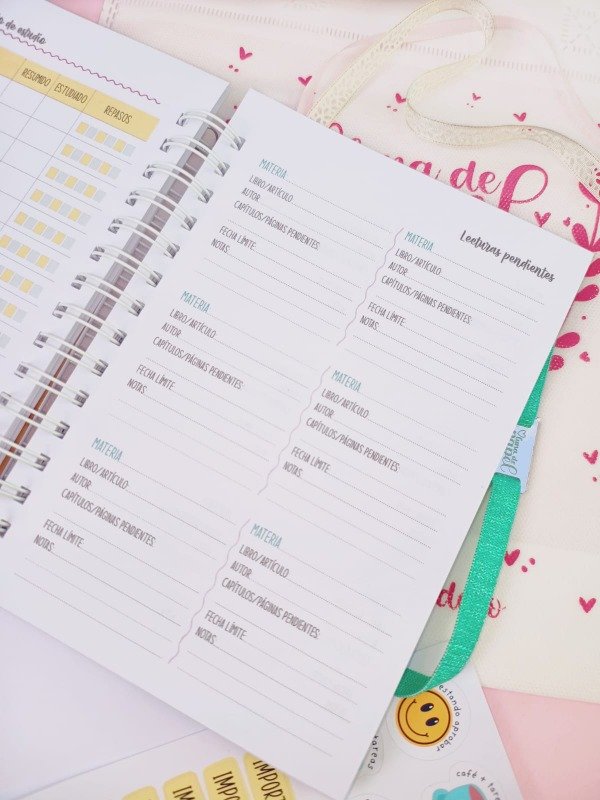 de estudio
RESUMIDO ESTUDIADO REPASOS
Lecturas pendientes
MATERIA
LIBRO/ARTÍCULO:
AUTOR:
CAPÍTULOS/PÁGINAS PENDIENTES:
FECHA LÍMITE:
NOTAS:
MATERIA
LIBRO/ARTÍCULO:
AUTOR:
CAPÍTULOS/PÁGINAS PENDIENTES:
FECHA LÍMITE:
NOTAS:
MATERIA
LIBRO/ARTÍCULO:
AUTOR:
CAPÍTULOS/PÁGINAS PENDIENTES:
FECHA LÍMITE:
NOTAS:
MATERIA
LIBRO/ARTÍCULO:
AUTOR:
CAPÍTULOS/PÁGINAS PENDIENTES:
FECHA LÍMITE:
NOTAS:
MATERIA
LIBRO/ARTÍCULO:
AUTOR:
CAPÍTULOS/PÁGINAS PENDIENTES:
FECHA LÍMITE:
NOTAS:
MATERIA
LIBRO/ARTÍCULO:
AUTOR:
CAPÍTULOS/PÁGINAS PENDIENTES:
FECHA LÍMITE:
NOTAS:
de
estando aprobar
tareas
café + tarea